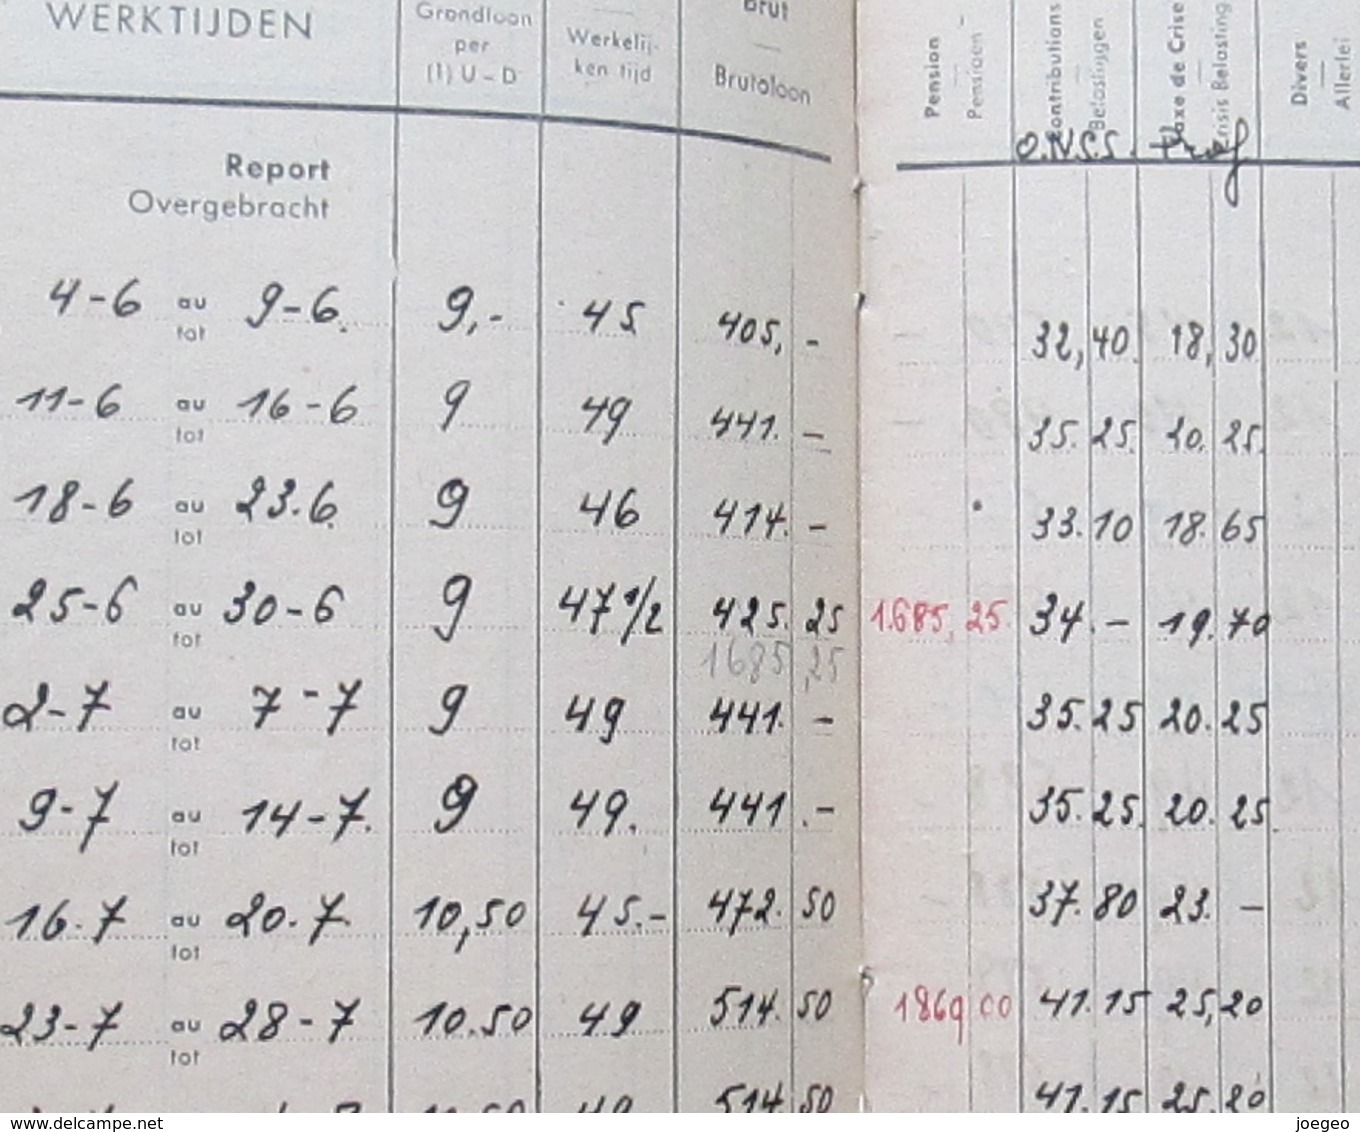 WERKTIJDEN Grondloon per (1) U - D Werkelij- ken tijd Brut Brutoloon Pension Pensioen Contributions Belastingen Taxe de Crise Crisis Belasting Divers Allerlei
O.N.S.S.
Report
Overgebracht
4-6 au tot 9-6. 9,- 45 405,- 32,40 18,30
11-6 au tot 16-6 9 49 441.- 35.25. 20.25.
18-6 au tot 23.6. 9 46 414.- 33.10 18.65
25-6 au tot 30-6 9 47 1/2 425.25 1.685,25. 34.- 19.70
1685,25
2-7 au tot 7-7 9 49 441.- 35.25 20.25
9-7 au tot 14-7. 9 49. 441.- 35.25. 20.25.
16.7 au tot 20.7. 10,50 45.- 472.50 37.80 23.-
23-7 au tot 28-7 10.50 49 514.50 1869 00 41.15 25,20
514.50 41.15 25.20
www.delcampe.net joegeo